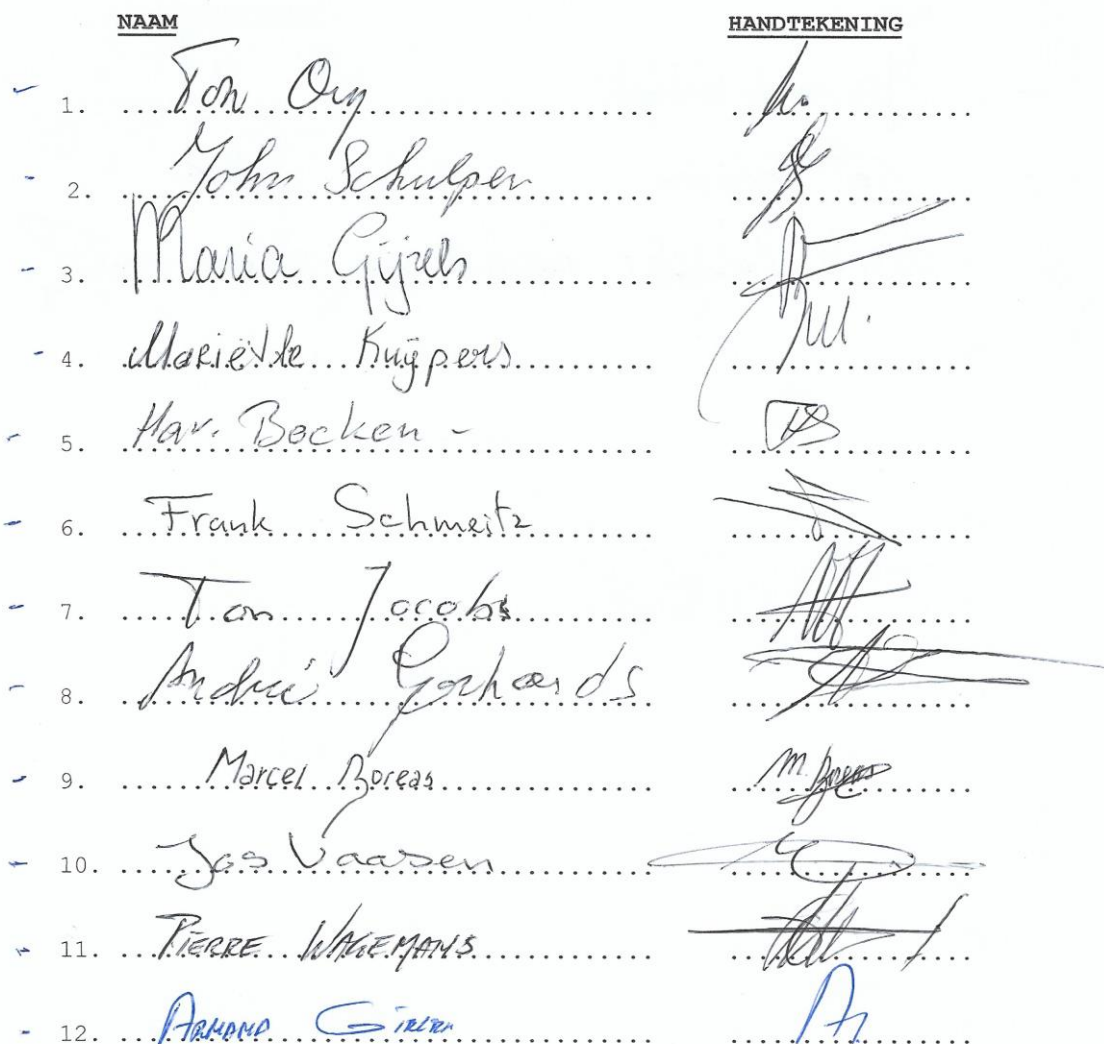 NAAM HANDTEKENING
1. Ton
2. John Schulpen
3. Maria Gijzels
4. Mariëtte Kuÿpers
5. Har. Bocken -
6. Frank Schmeitz
7. Ton Jacobs
8. André Gerhards
9. Marcel Boreas M. Boreas
10. Jos Vaassen
11. PIERRE WAGEMANS
12. ARMAND